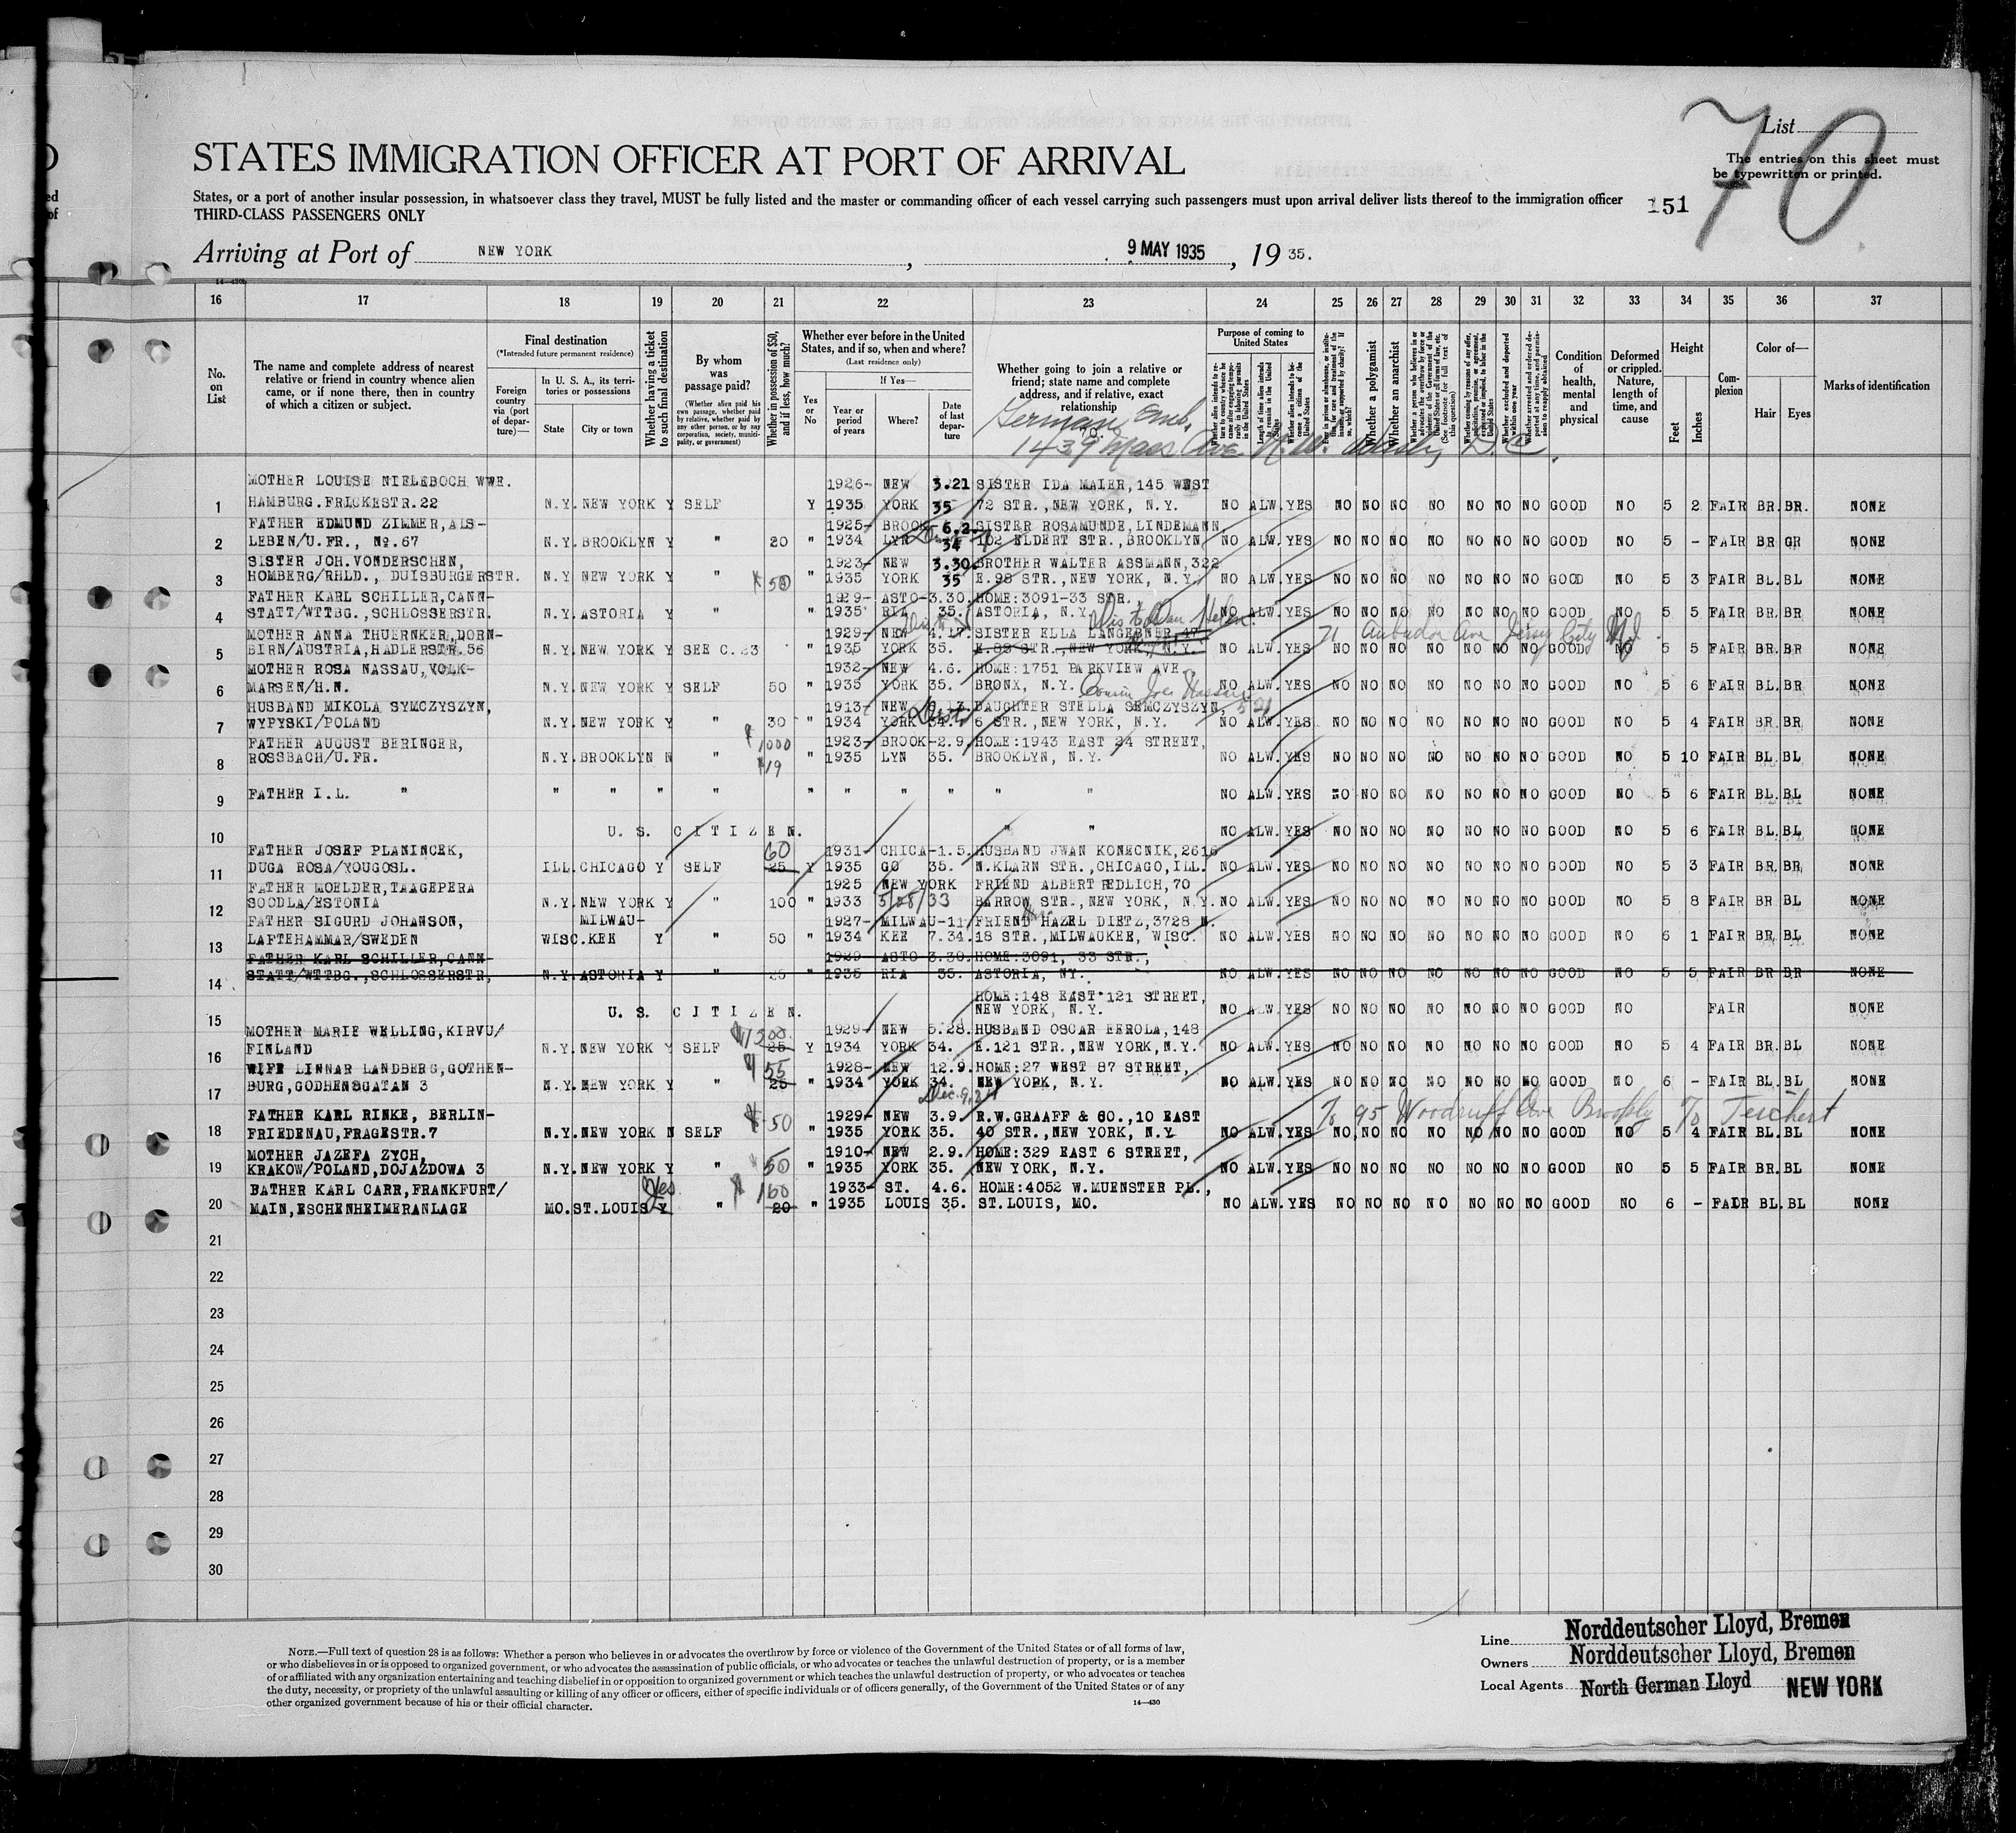 List
70
The entries on this sheet must
be typewritten or printed.
STATES IMMIGRATION OFFICER AT PORT OF ARRIVAL
States, or a port of another insular possession, in whatsoever class they travel, MUST be fully listed and the master or commanding officer of each vessel carrying such passengers must upon arrival deliver lists thereof to the immigration officer
THIRD-CLASS PASSENGERS ONLY
151
Arriving at Port of NEW YORK, 9 MAY 1935, 19 35.
16 17 18 19 20 21 22 23 24 25 26 27 28 29 30 31 32 33 34 35 36 37
No. on List
The name and complete address of nearest relative or friend in country whence alien came, or if none there, then in country of which a citizen or subject.
Final destination
(*Intended future permanent residence)
Foreign country via (port of departure)—
In U. S. A., its territories or possessions
State
City or town
Whether having a ticket to such final destination
By whom was passage paid?
(Whether alien paid his own passage, whether paid by relative, whether paid by any other person, or by any corporation, society, municipality, or government)
Whether in possession of $50, and if less, how much?
Whether ever before in the United States, and if so, when and where?
(Last residence only)
If Yes—
Yes or No
Year or period of years
Where?
Date of last departure
Whether going to join a relative or friend; state name and complete address, and if relative, exact relationship
German Emb.
1439 Mass Ave. N.W. Wash, D.C.
Purpose of coming to United States
Whether a polygamist
Whether an anarchist
Condition of health, mental and physical
Deformed or crippled. Nature, length of time, and cause
Height
Feet
Inches
Complexion
Color of—
Hair
Eyes
Marks of identification
MOTHER LOUISE NIELEBOCH WWE. 1926- NEW 3.21 SISTER IDA MAIER, 145 WEST
1 HAMBURG.FRICKESTR.22 N.Y. NEW YORK Y SELF Y 1935 YORK 35 72 STR., NEW YORK, N.Y. NO ALW. YES NO NO NO NO NO NO NO GOOD NO 5 2 FAIR BR. BR. NONE
FATHER EDMUND ZIMMER, ALS- 1925- BROOK- 6.2. SISTER ROSAMUNDE, LINDEMANN
2 LEBEN/U.FR., No.67 N.Y. BROOKLYN Y " 20 " 1934 LYN 34 102 ELDERT STR., BROOKLYN NO ALW. YES NO NO NO NO NO NO NO GOOD NO 5 - FAIR BR GR NONE
SISTER JOH.VONDERSCHEN, 1923- NEW 3.30. BROTHER WALTER ASSMANN, 322
3 HOMBERG/RHLD., DUISBURGERSTR. N.Y. NEW YORK Y " 50 " 1935 YORK 35 E.98 STR., NEW YORK, N.Y. NO ALW. YES NO NO NO NO NO NO NO GOOD NO 5 3 FAIR BL. BL NONE
FATHER KARL SCHILLER, CANN- 1929- ASTO- 3.30. HOME: 3091-33 STR.,
4 STATT/WTTBG., SCHLOSSERSTR. N.Y. ASTORIA Y " " 1935 RIA 35. ASTORIA, N.Y. NO ALW. YES NO NO NO NO NO NO NO GOOD NO 5 5 FAIR BR. BR NONE
MOTHER ANNA THUERNKER, DORN- 1929- NEW 4.17. SISTER ELLA LANGEBNER, 47
5 BIRN/AUSTRIA, HADLERSTR.56 N.Y. NEW YORK Y SEE C.23 " 1935 YORK 35. E.89 STR., NEW YORK, N.Y. NO ALW. YES NO NO NO NO NO NO NO GOOD NO 5 5 FAIR BR. BR NONE
MOTHER ROSA NASSAU, VOLK- 1932- NEW 4.6. HOME: 1751 PARKVIEW AVE
6 MARSEN/H.N. N.Y. NEW YORK Y SELF 50 " 1935 YORK 35. BRONX, N.Y. NO ALW. YES NO NO NO NO NO NO NO GOOD NO 5 6 FAIR BL. BR NONE
HUSBAND MIKOLA SYMCZYSZYN, 1913- NEW DAUGHTER STELLA SEMCZYSZYN, 521
7 WYPYSKI/POLAND N.Y. NEW YORK Y " 30 " 1934 YORK 34. 6 STR., NEW YORK, N.Y. NO ALW. YES NO NO NO NO NO NO NO GOOD NO 5 4 FAIR BR. BR NONE
FATHER AUGUST BERINGER, $1000 1923- BROOK- 2.9. HOME: 1943 EAST 24 STREET,
8 ROSSBACH/U.FR. N.Y. BROOKLYN N " $19 " 1935 LYN 35. BROOKLYN, N.Y. NO ALW. YES NO NO NO NO NO NO NO GOOD NO 5 10 FAIR BL. BL NONE
9 FATHER I.L. " " " " " " " " " " " NO ALW. YES NO NO NO NO NO NO NO GOOD NO 5 6 FAIR BL. BL NONE
10 U. S. C I T I Z E N. " " NO ALW. YES NO NO NO NO NO NO NO GOOD NO 5 6 FAIR BL. BL NONE
FATHER JOSEF PLANINCEK, 60 1931- CHICA- 1.5. HUSBAND JWAN KONECNIK, 2616
11 DUGA ROSA/YOUGOSL. ILL. CHICAGO Y SELF 25 Y 1935 GO 35. N.KLARN STR., CHICAGO, ILL. NO ALW. YES NO NO NO NO NO NO NO GOOD NO 5 3 FAIR BR. BR NONE
FATHER MOELDER, TAAGEPERA 1925 NEW YORK FRIEND ALBERT REDLICH, 70
12 SOODLA/ESTONIA N.Y. NEW YORK Y " 100 " 1933 5/28/33 BARROW STR., NEW YORK, N.Y. NO ALW. YES NO NO NO NO NO NO NO GOOD NO 5 8 FAIR BR BL NONE
FATHER SIGURD JOHANSON, MILWAU- 1927- MILWAU- 11 FRIEND HAZEL DIETZ, 3728 N.
13 LAFTEHAMMAR/SWEDEN WISC. KEE Y " 50 " 1934 KEE 7.34. 18 STR., MILWAUKEE, WISC. NO ALW. YES NO NO NO NO NO NO NO GOOD NO 6 1 FAIR BR. BL NONE
FATHER KARL SCHILLER, CANN- 1929 ASTO 3.30. HOME: 3091, 33 STR.,
14 STATT/WTTBG., SCHLOSSERSTR, N.Y. ASTORIA Y " 25 " 1935 RIA 35. ASTORIA, NY. NO ALW. YES NO NO NO NO NO NO NO GOOD NO 5 5 FAIR BR BR NONE
HOME: 148 EAST 121 STREET,
15 U. S. C I T I Z E N. NEW YORK, N.Y. NO ALW. YES NO NO NO NO NO NO NO GOOD NO FAIR NONE
MOTHER MARIE WELLING, KIRVU/ $1300 1929- NEW 5.28. HUSBAND OSCAR EEROLA, 148
16 FINLAND N.Y. NEW YORK Y SELF 25 Y 1934 YORK 34. E.121 STR., NEW YORK, N.Y. NO ALW. YES NO NO NO NO NO NO NO GOOD NO 5 4 FAIR BR. BL NONE
WIFE LINNAR LANDBERG, GOTHEN- 55 1928- NEW 12.9. HOME: 27 WEST 87 STREET,
17 BURG, GODHENSGATAN 3 N.Y. NEW YORK Y " 25 " 1934 YORK 34. NEW YORK, N.Y. NO ALW. YES NO NO NO NO NO NO NO GOOD NO 6 - FAIR BL. BL NONE
Dec. 9, 34
95 Woodruff Ave Brookly Teichert
FATHER KARL RINKE, BERLIN- 1929- NEW 3.9. R.W.GRAAFF & CO., 10 EAST
18 FRIEDENAU, FRAGESTR.7 N.Y. NEW YORK N SELF 50 " 1935 YORK 35. 40 STR., NEW YORK, N.Y. NO ALW. YES NO NO NO NO NO NO NO GOOD NO 5 4 FAIR BL. BL NONE
MOTHER JAZEFA ZYCH, 1910- NEW 2.9. HOME: 329 EAST 6 STREET,
19 KRAKOW/POLAND, DOJAZDOWA 3 N.Y. NEW YORK Y " 50 " 1935 YORK 35. NEW YORK, N.Y. NO ALW. YES NO NO NO NO NO NO NO GOOD NO 5 5 FAIR BR. BL NONE
BATHER KARL CARR, FRANKFURT/ Yes 160 1933- ST. 4.6. HOME: 4052 W.MUENSTER PL.,
20 MAIN, ESCHENHEIMERANLAGE MO. ST.LOUIS Y " 20 " 1935 LOUIS 35. ST.LOUIS, MO. NO ALW. YES NO NO NO NO NO NO NO GOOD NO 6 - FAIR BL. BL NONE
21
22
23
24
25
26
27
28
29
30
NOTE.—Full text of question 28 is as follows: Whether a person who believes in or advocates the overthrow by force or violence of the Government of the United States or of all forms of law,
or who disbelieves in or is opposed to organized government, or who advocates the assassination of public officials, or who advocates or teaches the unlawful destruction of property, or is a member
of or affiliated with any organization entertaining and teaching disbelief in or opposition to organized government or which teaches the unlawful destruction of property, or who advocates or teaches
the duty, necessity, or propriety of the unlawful assaulting or killing of any officer or officers, either of specific individuals or of officers generally, of the Government of the United States or of any
other organized government because of his or their official character.
14—430
Line Norddeutscher Lloyd, Bremen
Owners Norddeutscher Lloyd, Bremen
Local Agents North German Lloyd NEW YORK